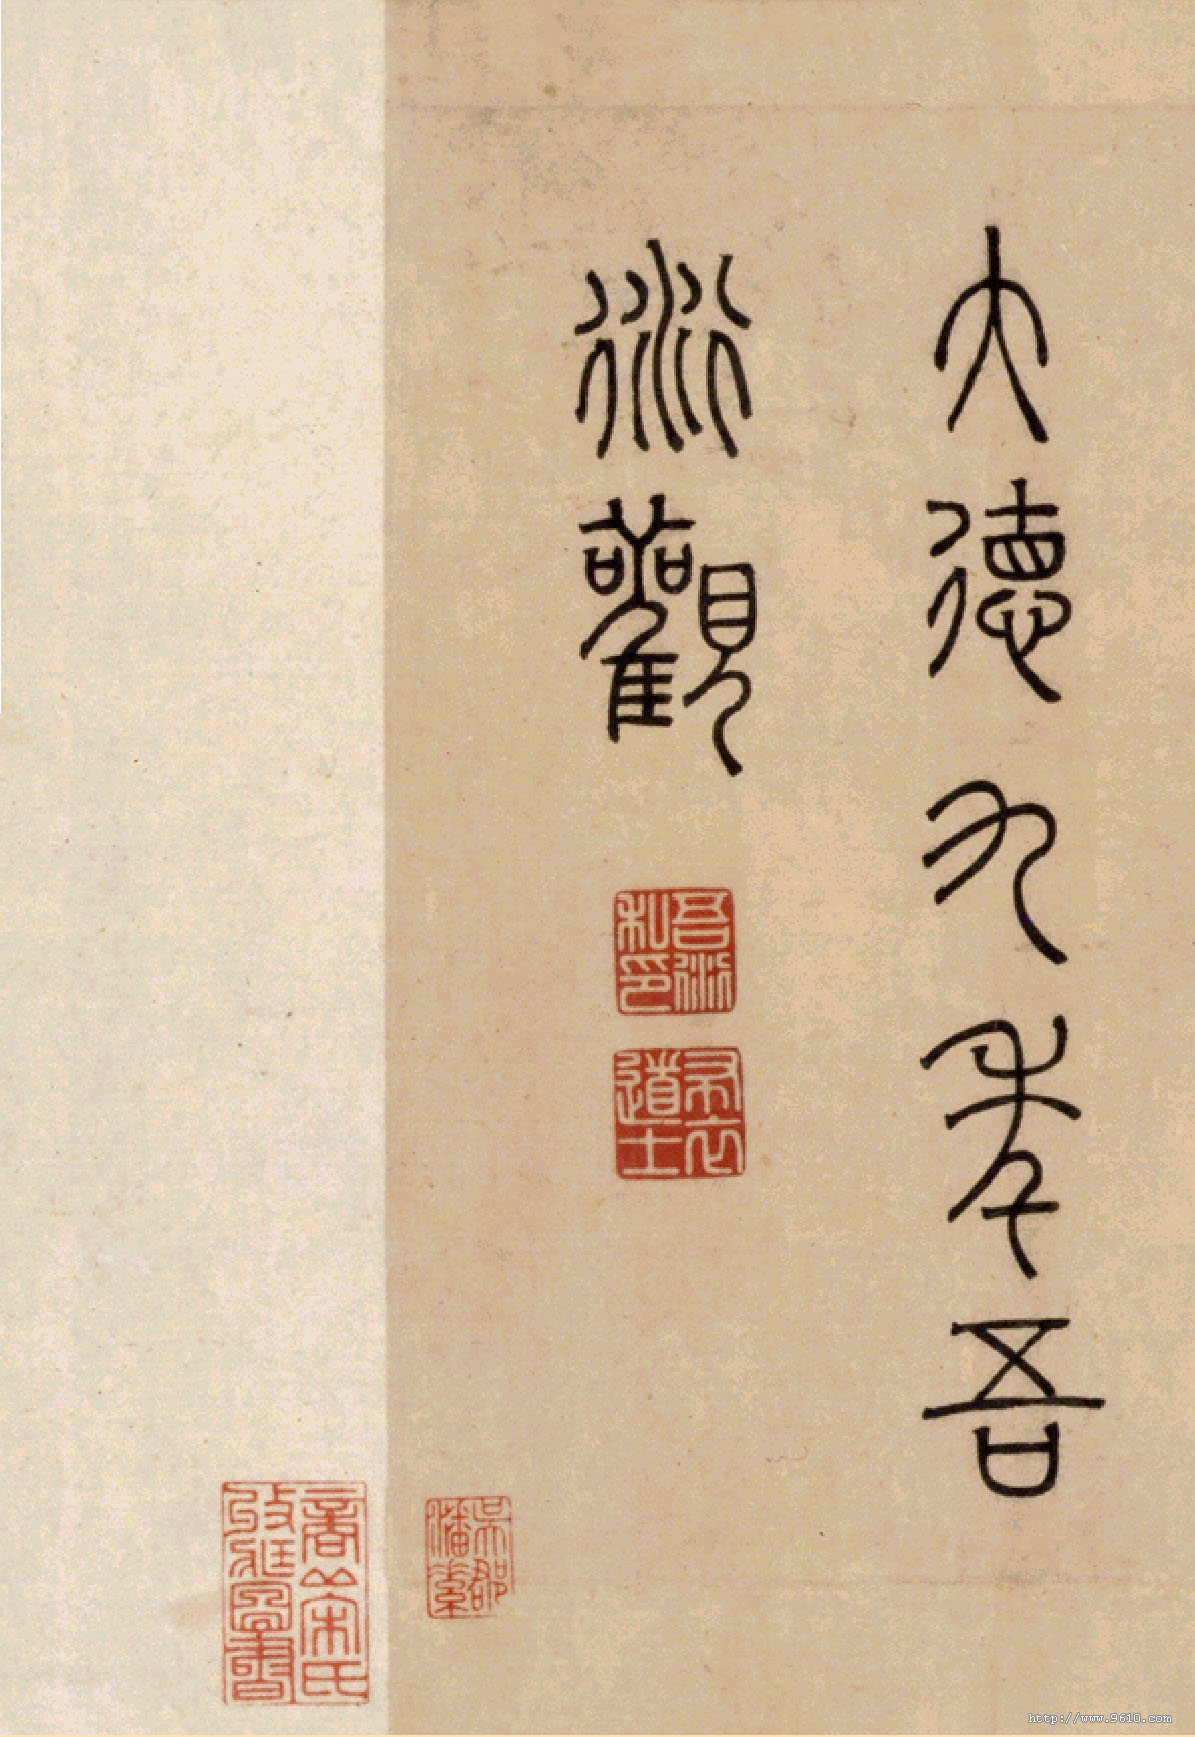 大德九年吾
衍觀
吾衍
私印
布衣
道士
吳郡
潘素
商丘宋氏
收藏圖書
http://www.9610.com